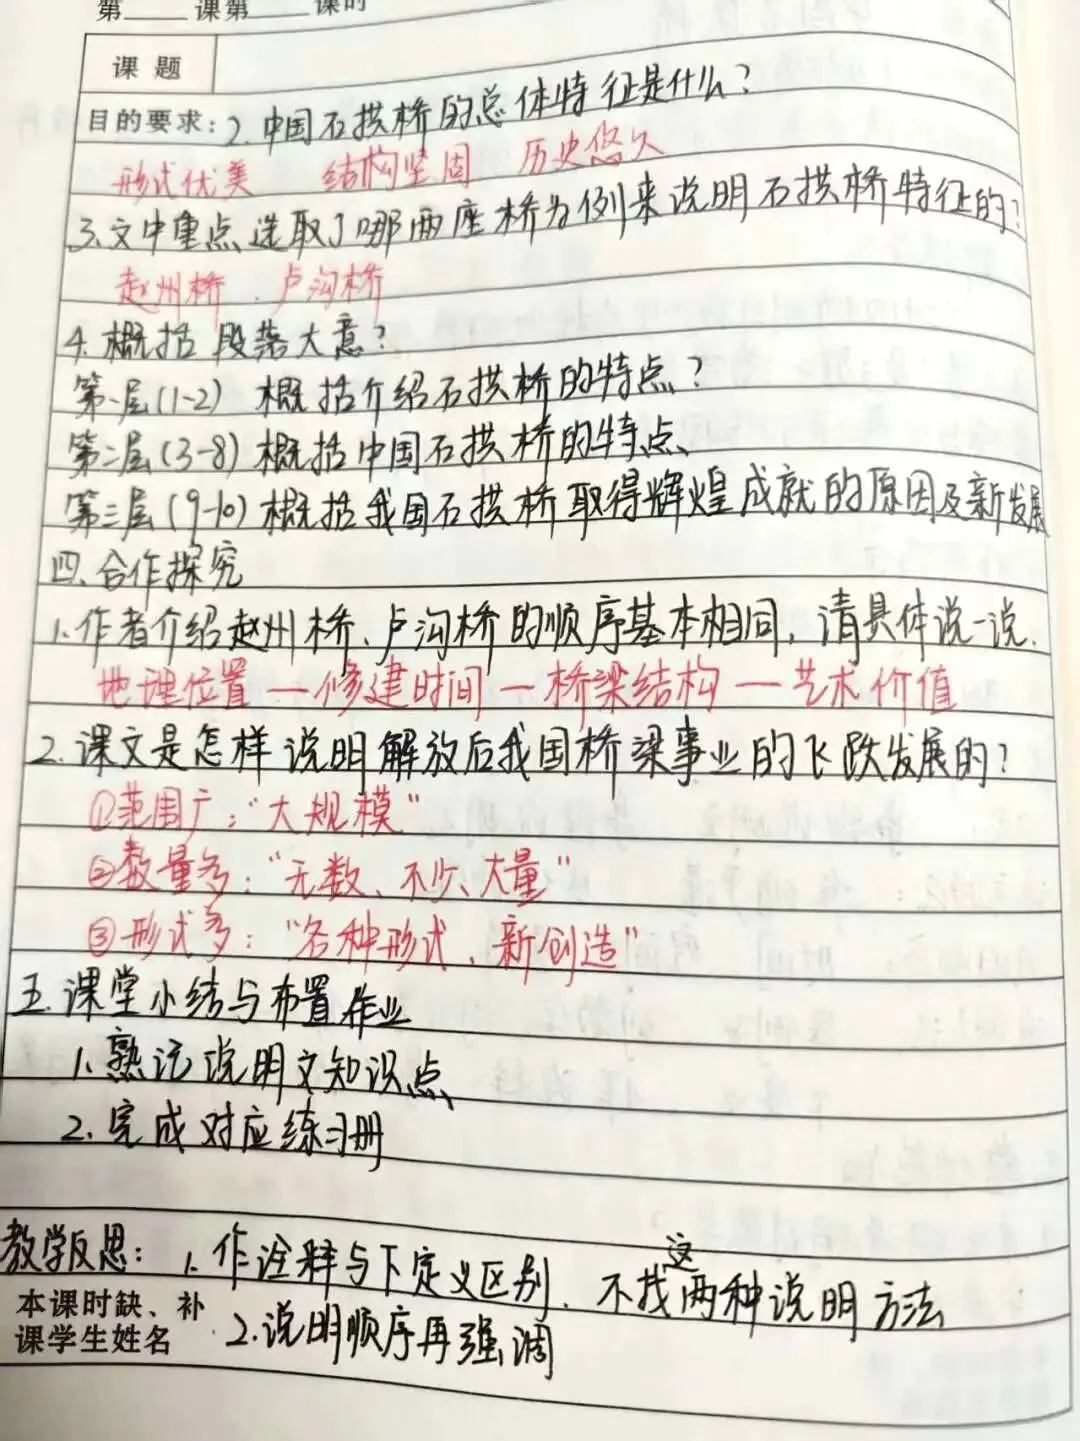 第____课第____课时
课题
目的要求：2.中国石拱桥的总体特征是什么？
形式优美 结构坚固 历史悠久
3.文中重点选取了哪两座桥为例来说明石拱桥特征的？
赵州桥、卢沟桥
4.概括段落大意？
第一层(1-2) 概括介绍石拱桥的特点？
第二层(3-8)概括中国石拱桥的特点、
第三层(9-10)概括我国石拱桥取得辉煌成就的原因及新发展
四.合作探究
1.作者介绍赵州桥、卢沟桥的顺序基本相同，请具体说一说.
地理位置—修建时间—桥梁结构—艺术价值
2.课文是怎样说明解放后我国桥梁事业的飞跃发展的？
①范围广：“大规模”
②数量多：“无数、不少、大量”
③形式多：“各种形式、新创造”
五.课堂小结与布置作业
1.熟记说明文知识点、
2.完成对应练习册
教学反思：1.作诠释与下定义区别、不找这两种说明方法
本课时缺、补
课学生姓名
2.说明顺序再强调